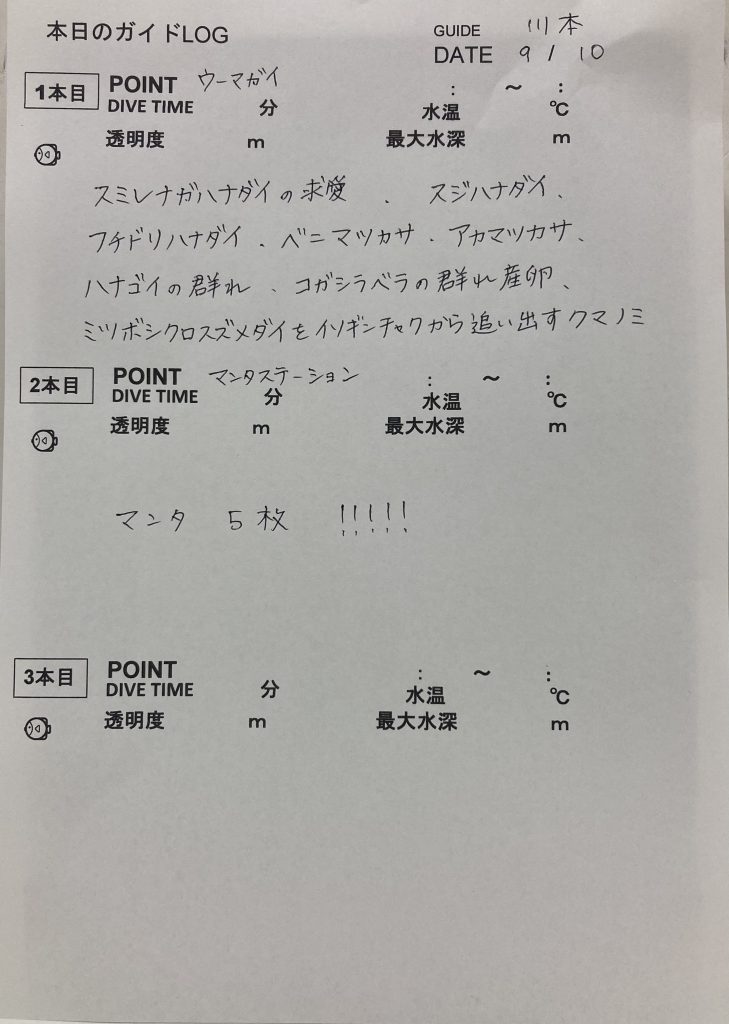 本日のガイドLOG
GUIDE 川本
DATE 9 / 10
1本目 POINT ウーマガイ : ～ :
DIVE TIME 分 水温 ℃
透明度 m 最大水深 m
スミレナガハナダイの求愛 、 スジハナダイ、
フチドリハナダイ 、ベニマツカサ 、アカマツカサ、
ハナゴイの群れ 、コガシラベラの群れ産卵、
ミツボシクロスズメダイをイソギンチャクから追い出すクマノミ
2本目 POINT マンタステーション : ～ :
DIVE TIME 分 水温 ℃
透明度 m 最大水深 m
マンタ 5枚 !!!!!
3本目 POINT : ～ :
DIVE TIME 分 水温 ℃
透明度 m 最大水深 m